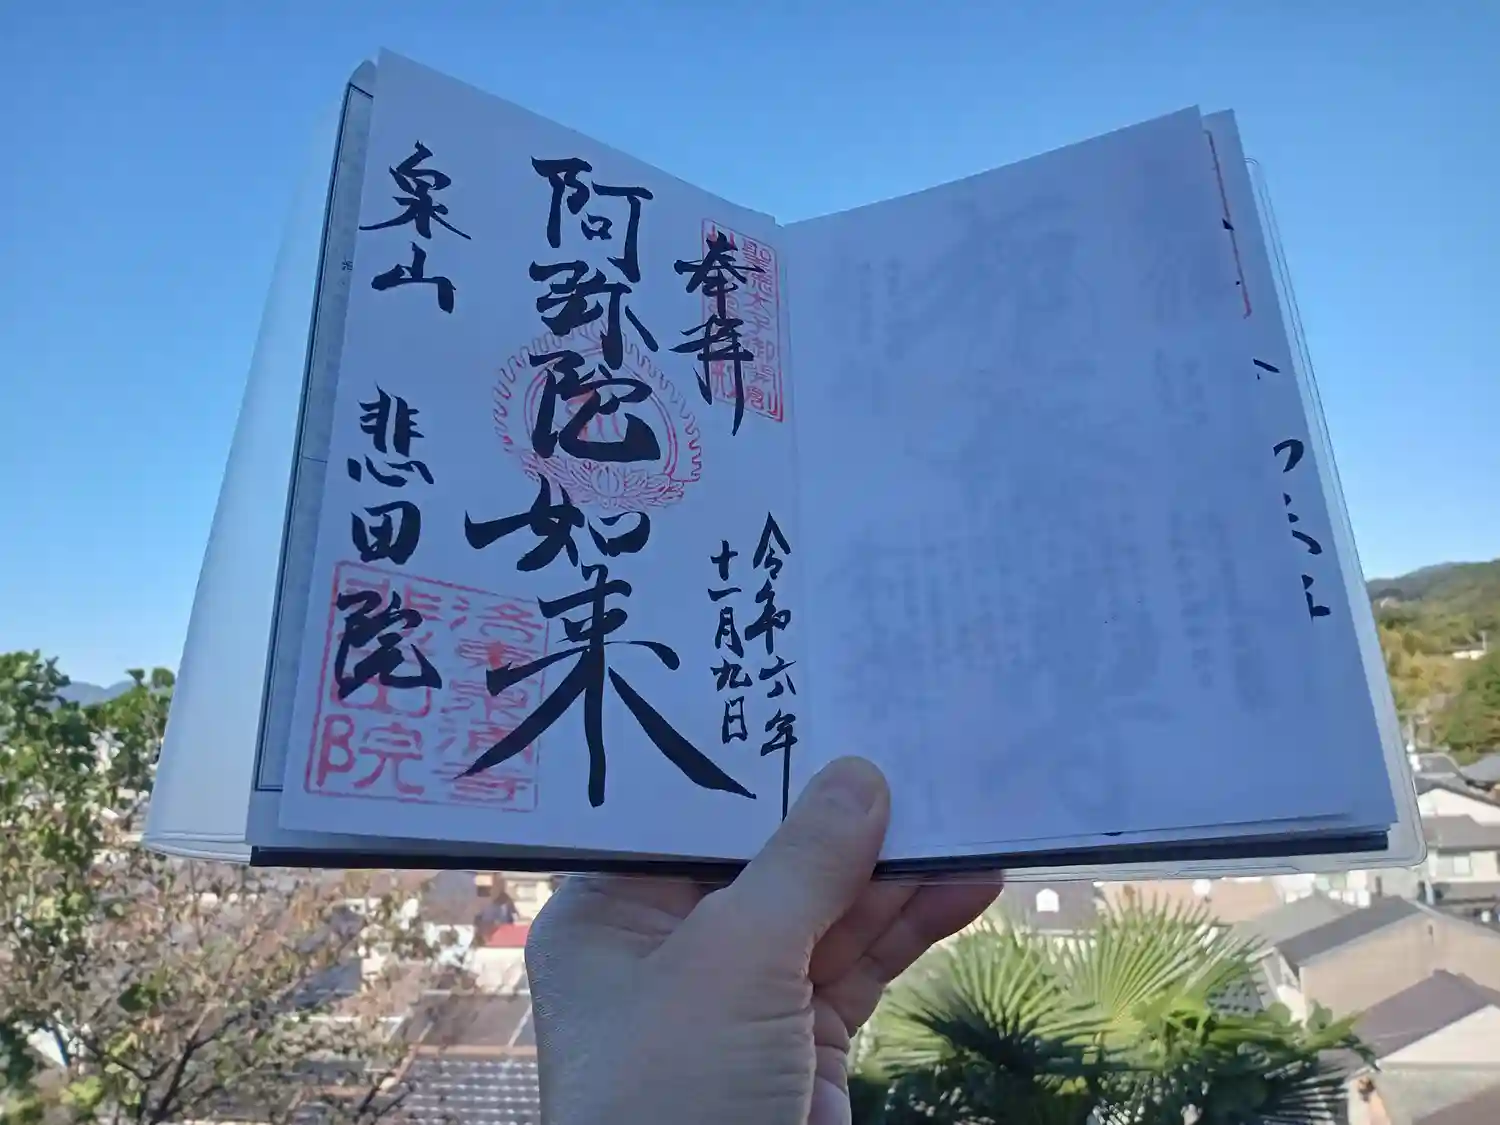 奉拝
令和六年
十一月九日
阿弥陀如来
泉山 悲田院
聖徳太子御開創
洛東泉涌寺
悲田院